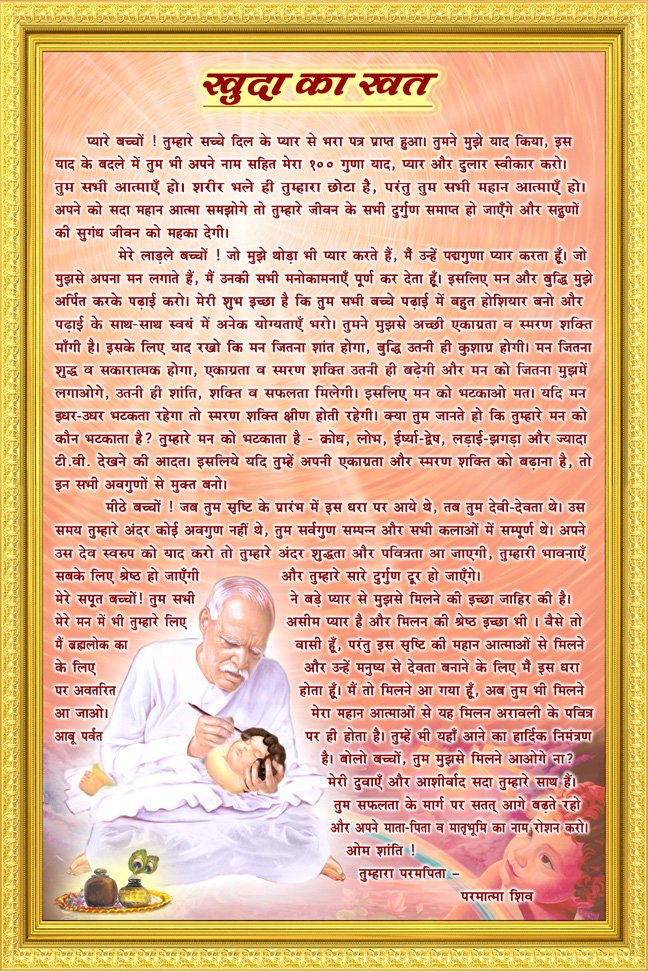 खुदा का खत
प्यारे बच्चों ! तुम्हारे सच्चे दिल के प्यार से भरा पत्र प्राप्त हुआ। तुमने मुझे याद किया, इस
याद के बदले में तुम भी अपने नाम सहित मेरा १०० गुणा याद, प्यार और दुलार स्वीकार करो।
तुम सभी आत्माएँ हो। शरीर भले ही तुम्हारा छोटा है, परंतु तुम सभी महान आत्माएँ हो।
अपने को सदा महान आत्मा समझोगे तो तुम्हारे जीवन के सभी दुर्गुण समाप्त हो जाएँगे और सद्गुणों
की सुगंध जीवन को महका देगी।
मेरे लाड़ले बच्चों ! जो मुझे थोड़ा भी प्यार करते हैं, मैं उन्हें पद्मगुणा प्यार करता हूँ। जो
मुझसे अपना मन लगाते हैं, मैं उनकी सभी मनोकामनाएँ पूर्ण कर देता हूँ। इसलिए मन और बुद्धि मुझे
अर्पित करके पढ़ाई करो। मेरी शुभ इच्छा है कि तुम सभी बच्चे पढ़ाई में बहुत होशियार बनो और
पढ़ाई के साथ-साथ स्वयं में अनेक योग्यताएँ भरो। तुमने मुझसे अच्छी एकाग्रता व स्मरण शक्ति
माँगी है। इसके लिए याद रखो कि मन जितना शांत होगा, बुद्धि उतनी ही कुशाग्र होगी। मन जितना
शुद्ध व सकारात्मक होगा, एकाग्रता व स्मरण शक्ति उतनी ही बढ़ेगी और मन को जितना मुझमें
लगाओगे, उतनी ही शांति, शक्ति व सफलता मिलेगी। इसलिए मन को भटकाओ मत। यदि मन
इधर-उधर भटकता रहेगा तो स्मरण शक्ति क्षीण होती रहेगी। क्या तुम जानते हो कि तुम्हारे मन को
कौन भटकाता है? तुम्हारे मन को भटकाता है - क्रोध, लोभ, ईर्ष्या-द्वेष, लड़ाई-झगड़ा और ज्यादा
टी.वी. देखने की आदत। इसलिये यदि तुम्हें अपनी एकाग्रता और स्मरण शक्ति को बढ़ाना है, तो
इन सभी अवगुणों से मुक्त बनो।
मीठे बच्चों ! जब तुम सृष्टि के प्रारंभ में इस धरा पर आये थे, तब तुम देवी-देवता थे। उस
समय तुम्हारे अंदर कोई अवगुण नहीं थे, तुम सर्वगुण सम्पन्न और सभी कलाओं में सम्पूर्ण थे। अपने
उस देव स्वरुप को याद करो तो तुम्हारे अंदर शुद्धता और पवित्रता आ जाएगी, तुम्हारी भावनाएँ
सबके लिए श्रेष्ठ हो जाएँगी और तुम्हारे सारे दुर्गुण दूर हो जाएँगे।
मेरे सपूत बच्चों! तुम सभी ने बड़े प्यार से मुझसे मिलने की इच्छा जाहिर की है।
मेरे मन में भी तुम्हारे लिए असीम प्यार है और मिलन की श्रेष्ठ इच्छा भी । वैसे तो
मैं ब्रह्मलोक का वासी हूँ, परंतु इस सृष्टि की महान आत्माओं से मिलने
के लिए और उन्हें मनुष्य से देवता बनाने के लिए मैं इस धरा
पर अवतरित होता हूँ। मैं तो मिलने आ गया हूँ, अब तुम भी मिलने
आ जाओ। मेरा महान आत्माओं से यह मिलन अरावली के पवित्र
आबू पर्वत पर ही होता है। तुम्हें भी यहाँ आने का हार्दिक निमंत्रण
है। बोलो बच्चों, तुम मुझसे मिलने आओगे ना?
मेरी दुवाएँ और आशीर्वाद सदा तुम्हारे साथ हैं।
तुम सफलता के मार्ग पर सतत् आगे बढ़ते रहो
और अपने माता-पिता व मातृभूमि का नाम रोशन करो।
ओम शांति !
तुम्हारा परमपिता –
परमात्मा शिव